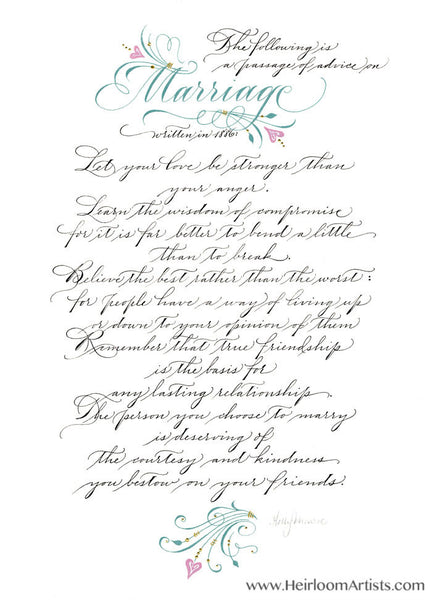 The following is
a passage of advice on
Marriage
written in 1886:
Let your love be stronger than
your anger.
Learn the wisdom of compromise
for it is far better to bend a little
than to break.
Believe the best rather than the worst:
for people have a way of living up
or down to your opinion of them
Remember that true friendship
is the basis for
any lasting relationship.
The person you choose to marry
is deserving of
the courtesy and kindness
you bestow on your friends.
www.HeirloomArtists.com